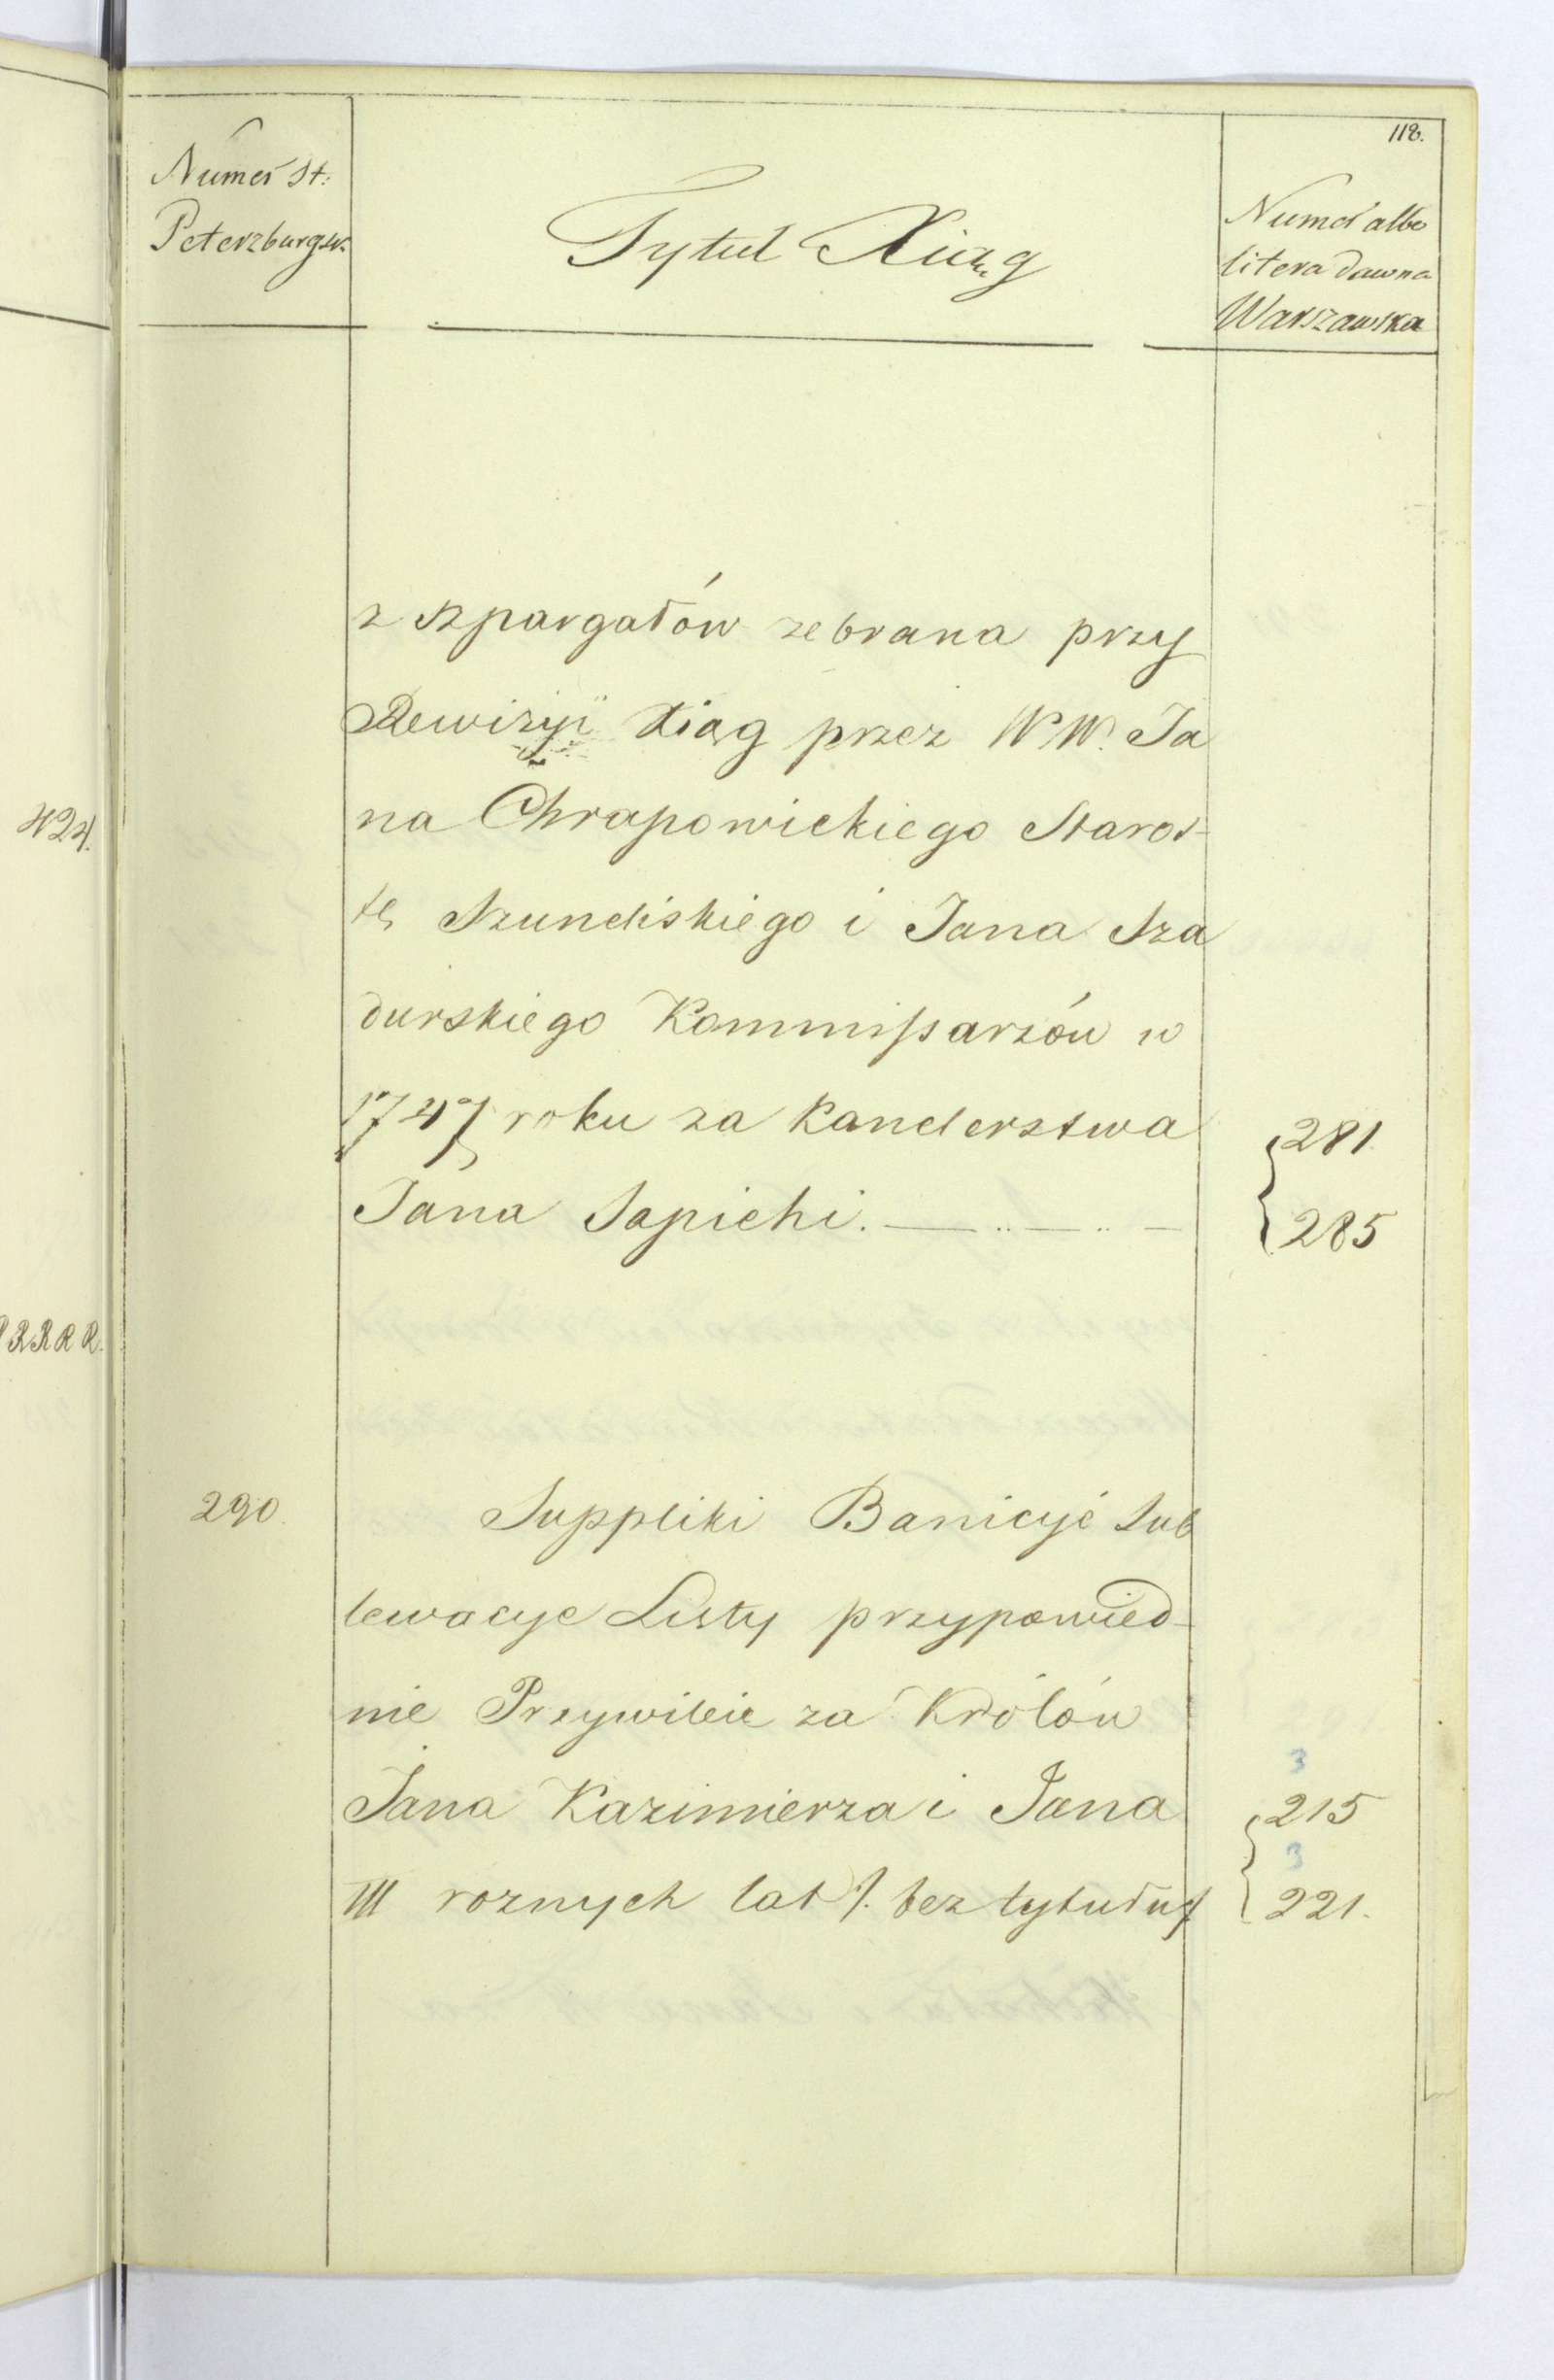 118.
Numer St:
Peterzburgsk.
Tytuł Xiąg
Numer albo
litera dawna
Warszawska
z szpargałów zebrana przy
Rewizyi Xiąg przez W.W. Ja
na Chrapowickiego Staros-
424.
tę Szundiskiego i Jana Sza
durskiego Kommissarzów w
1747 roku za Kanclerstwa
281.
Jana Sapiehi.
285
RRRR.
290.
Suppliki Banicyje Sub
lewacye Listy przypowied-
nie Przywileie za Królów
3
Jana Kazimierza i Jana
215
3
III roznych lat /. bez tytułu /.
221.